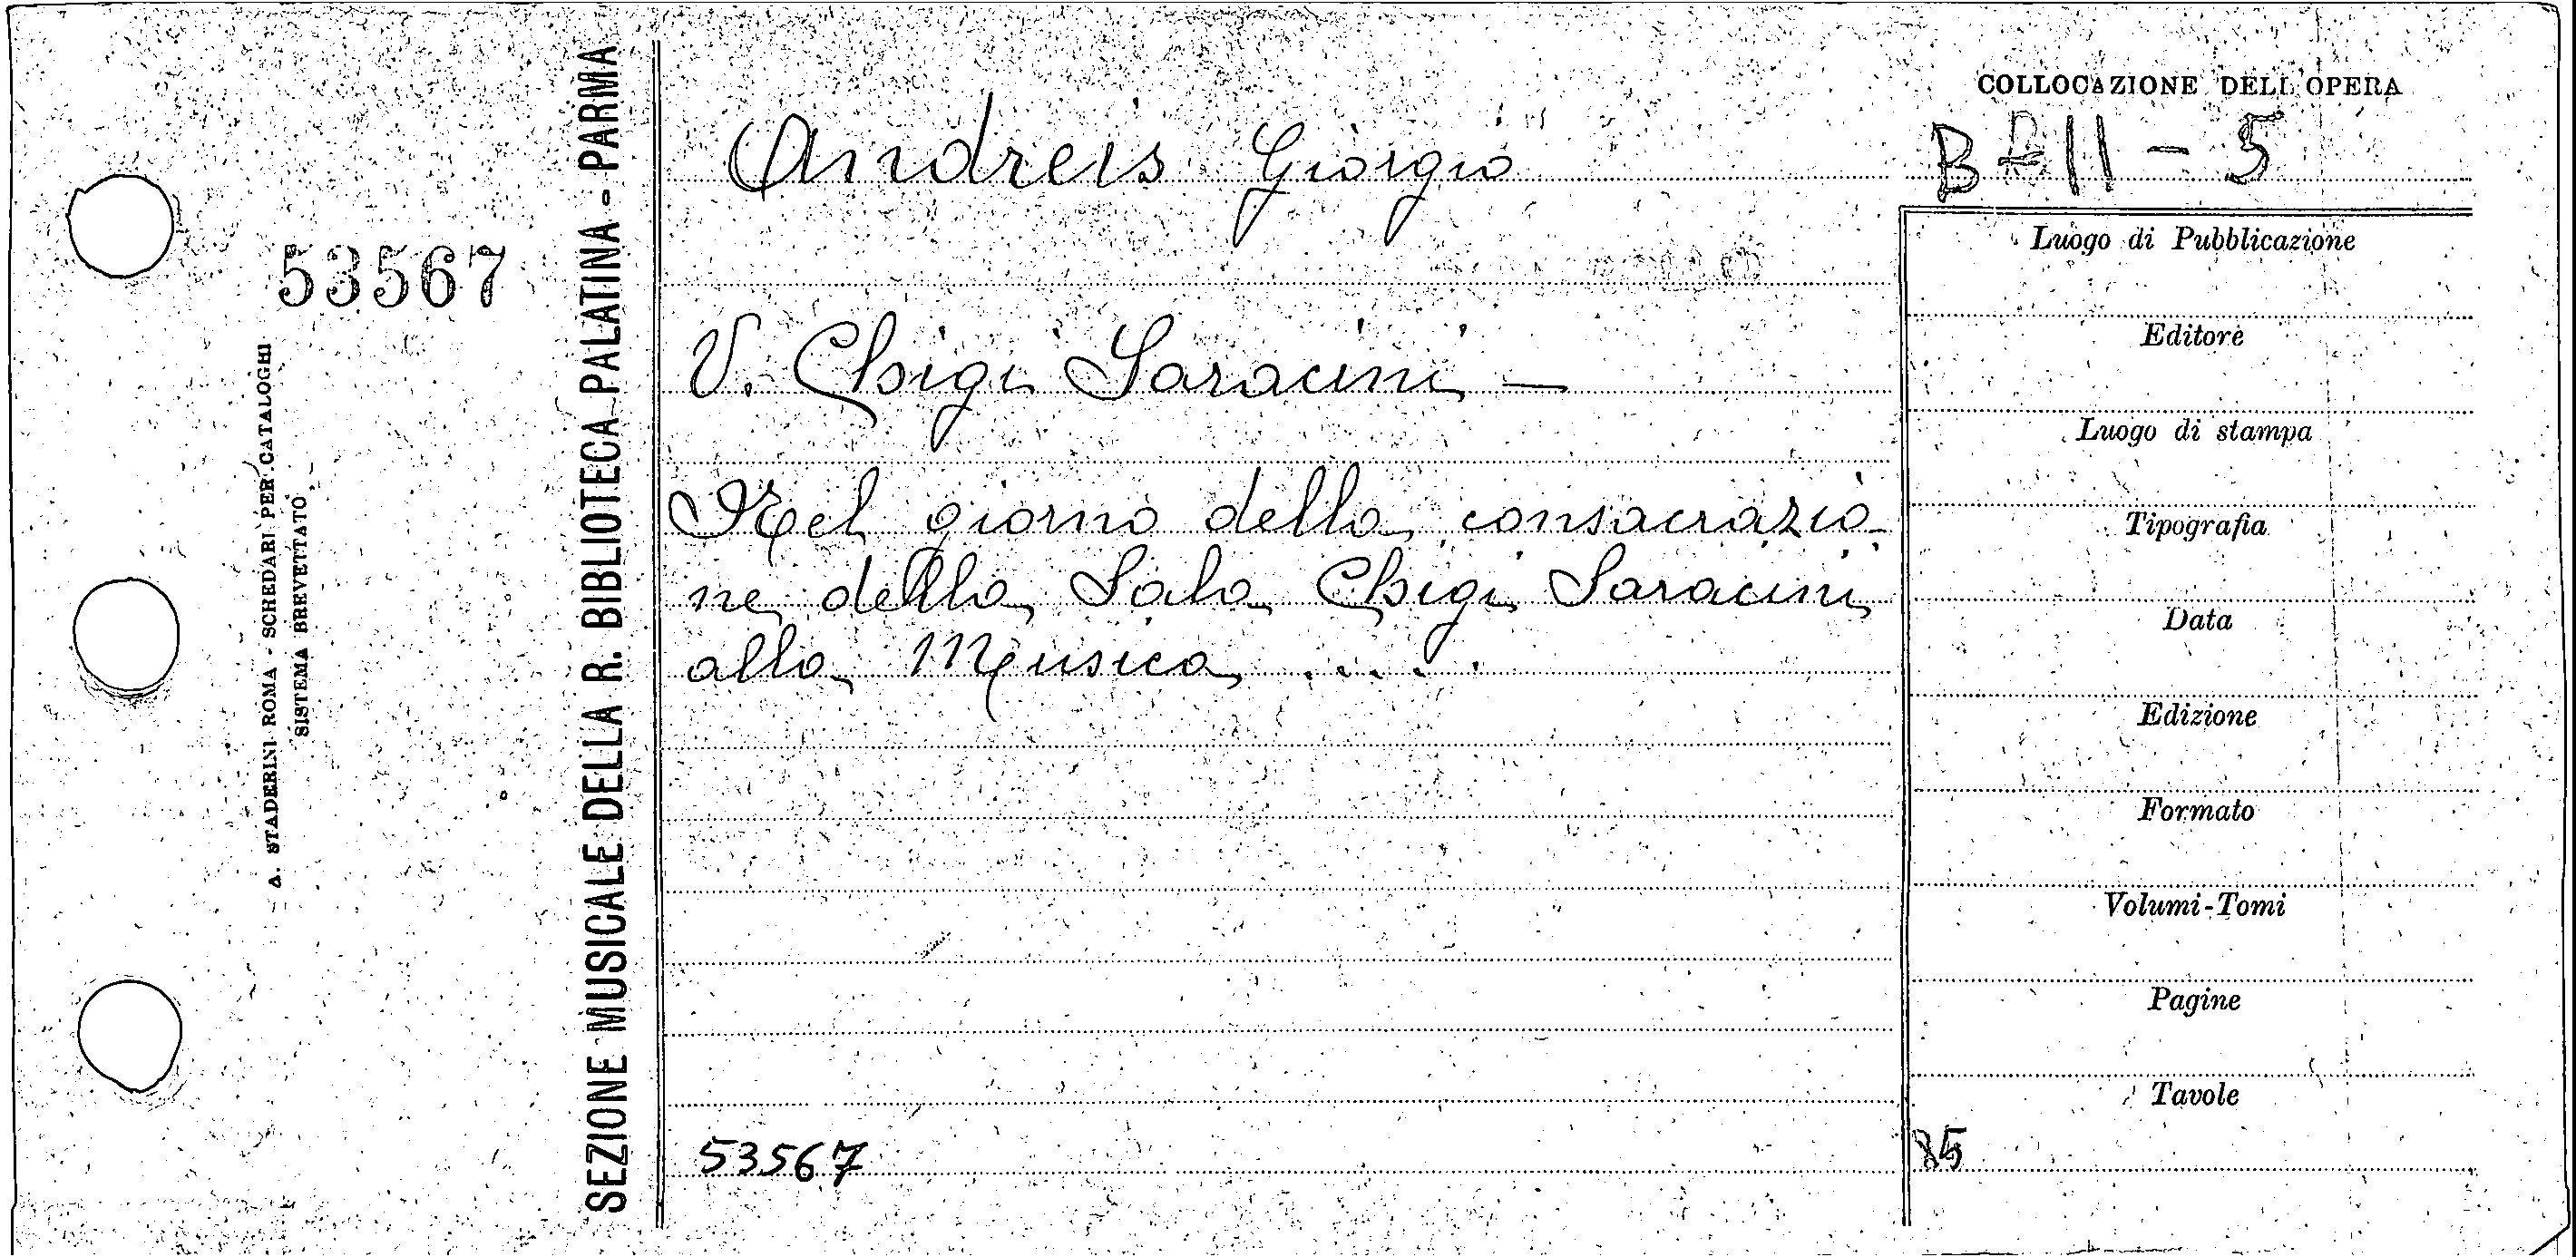 COLLOCAZIONE DELL'OPERA
Andreis Giorgio
B - 11 - 5
53567
V. Chigi Saracini -
Nel giorno della consacrazio
ne della Sala Chigi Saracini
alla Musica ....
53567
85
Luogo di Pubblicazione
Editore
Luogo di stampa
Tipografia
Data
Edizione
Formato
Volumi-Tomi
Pagine
Tavole
SEZIONE MUSICALE DELLA R. BIBLIOTECA PALATINA - PARMA
A. STADERINI ROMA - SCHEDARI PER CATALOGHI
SISTEMA BREVETTATO